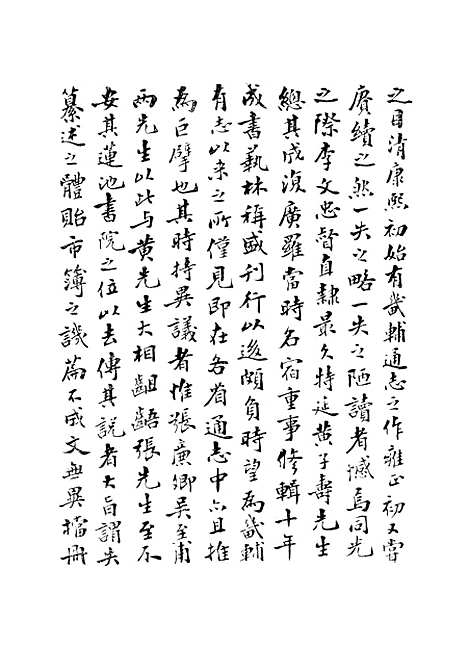 之目清康熙初始有畿輔通志之作雍正初又嘗
賡續之然一失之略一失之陋讀者憾焉同光
之際李文忠督直隸最久特延黄子壽先生
總其成復廣羅當時名宿重事修輯十年
成書藝林稱盛刊行以後頗負時望為畿輔
有志以來之所僅見即在各省通志中亦且推
為巨擘也其時持異議者惟張廉卿吴至甫
兩先生以此与黄先生大相齟齬張先生至不
安其蓮池書院之位以去傳其説者大旨謂失
纂述之體貽市簿之譏篇不成文無異檔冊